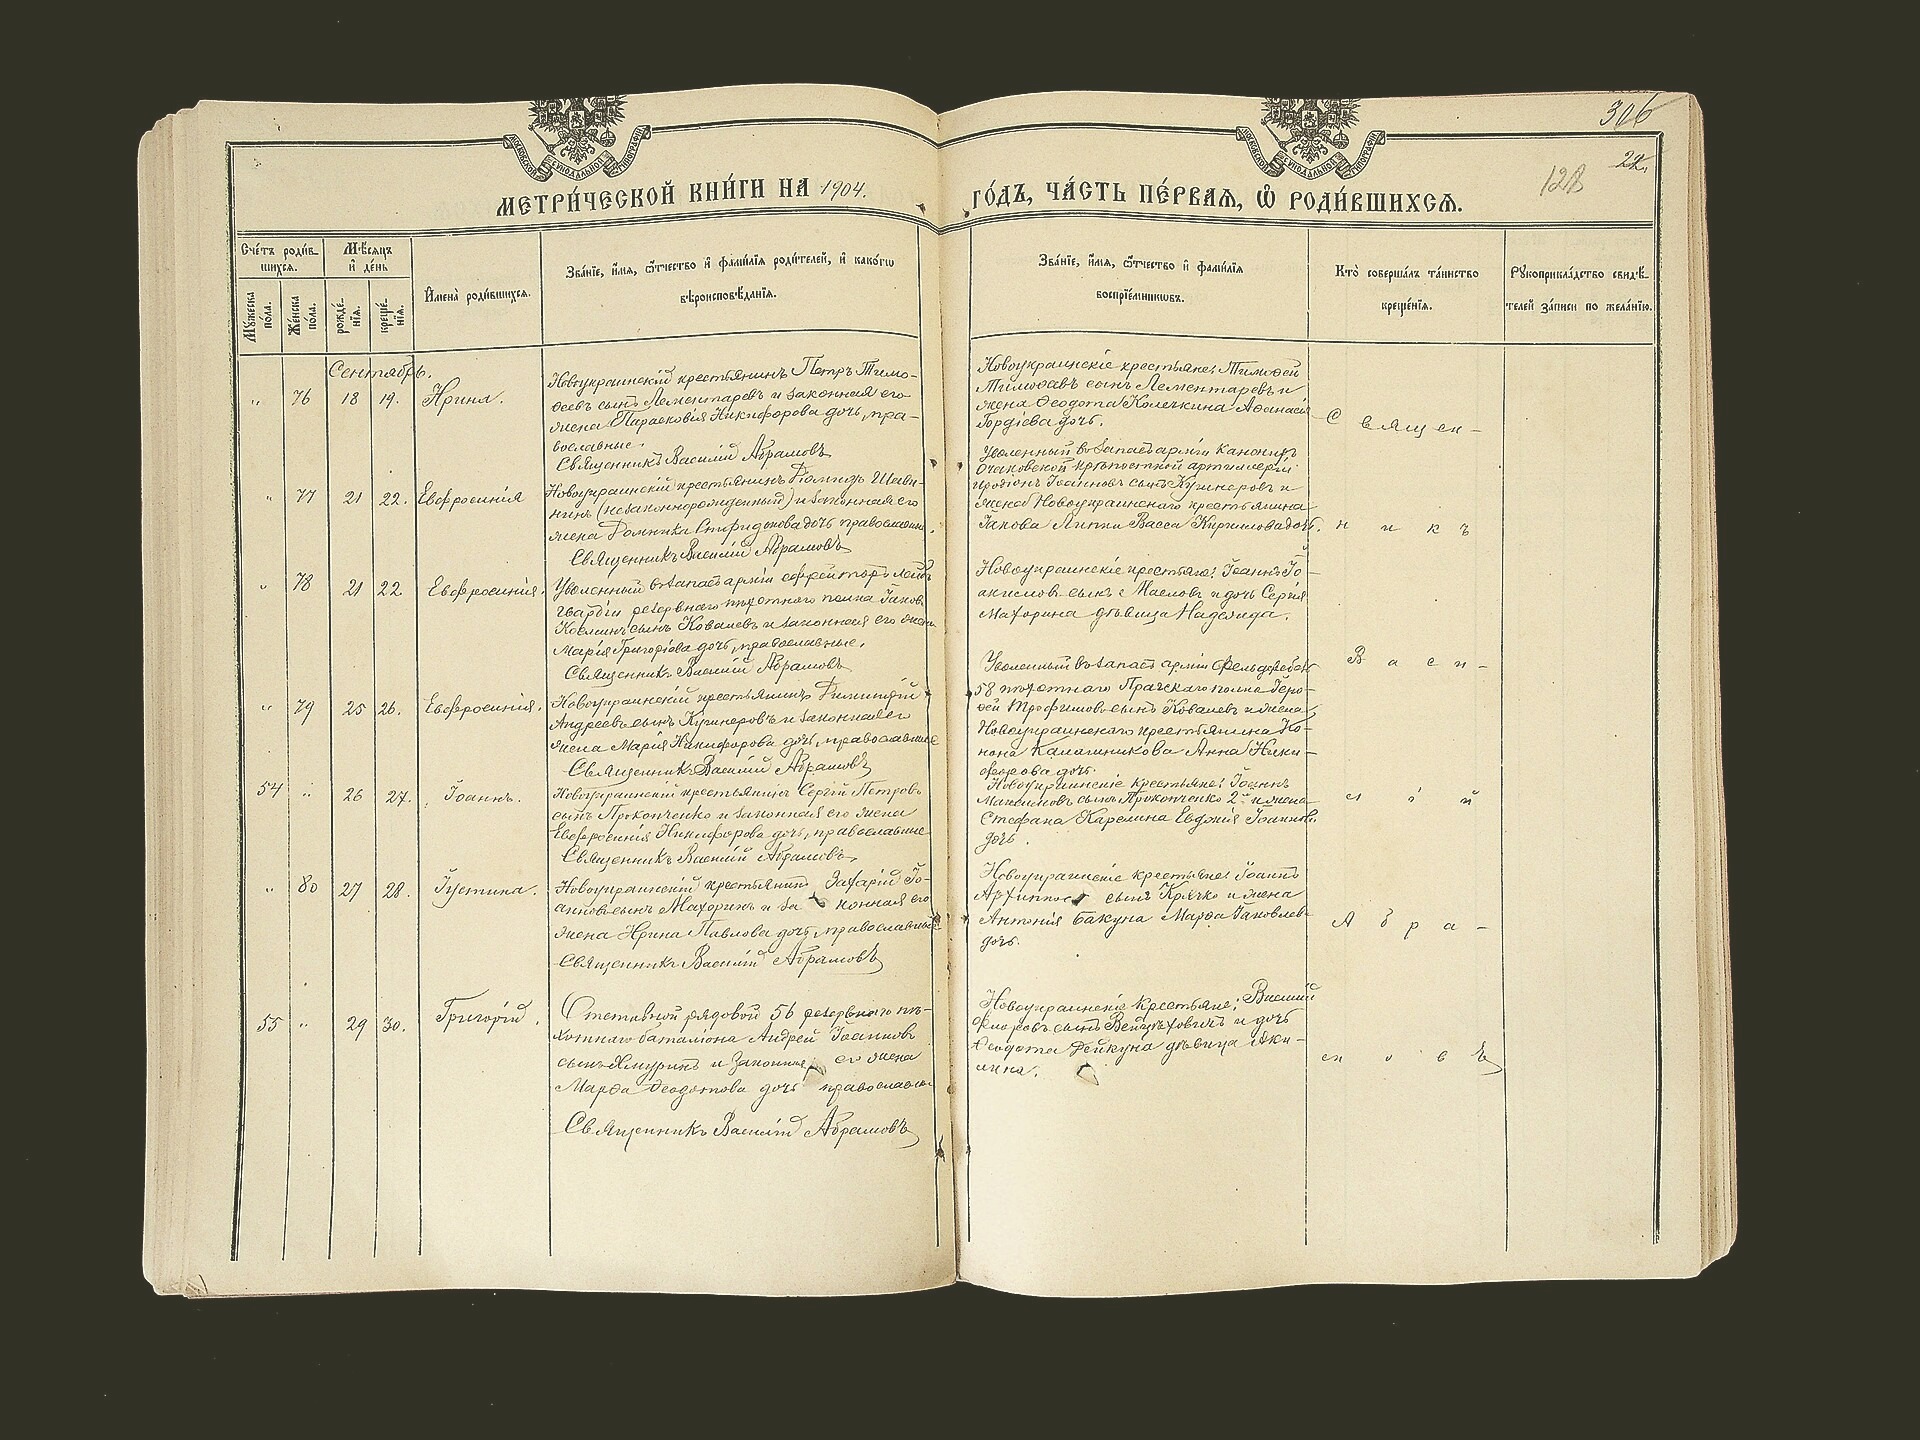 306
128
22.
МОСКОВСКОЙ СѴНОДАЛЬНОЙ ТИПОГРАФІИ
МОСКОВСКОЙ СѴНОДАЛЬНОЙ ТИПОГРАФІИ
МЕТРИ́ЧЕСКОЙ КНИ́ГИ НА 1904.
ГО́ДЪ, ЧА́СТЬ ПЕ́РВАЯ, Ѡ РОДИ́ВШИХСЯ.
Сче́тъ роди́в-
шихся.
Мѣ́сяцъ
и де́нь
Му́жеска по́ла.
Же́нска по́ла.
рожде́-нія.
креще́-нія.
Имена̀ роди́вшихся.
Зва́ніе, и́мя, ѻ́тчество и фами́лія роди́телей, и како́гѡ
вѣроисповѣ́данія.
Зва́ніе, и́мя, ѻ́тчество и фами́лія
воспріе́мникѡвъ.
Кто̀ соверша́лъ та́инство
креще́нія.
Рꙋкоприкла́дство свидѣ́-
телей за́писи по жела́нію.
Сентябрь.
" 76 18 19. Ирина.
Новоукраинскій крестьянинъ Петръ Тимо-
ѳеевъ сынъ Лементаревъ и законная его
жена Парасковія Никифорова дочь, пра-
вославные.
Священникъ Василій Абрамовъ
Новоукраинскіе крестьяне: Тимоѳей
Тимоѳеевъ сынъ Лементаревъ и
жена Ѳеодота Колечкина Аѳанасія
Гордіева дочь.
Священ-
" 77 21 22. Евфросинія
Новоукраинскій крестьянинъ
(незаконнорожденный) и законная его
жена Домникія Спиридонова дочь православные.
Священникъ Василій Абрамовъ
Уволенный въ запасъ арміи канониръ
Очаковской крѣпостной артиллеріи
Іоанновъ сынъ Кушнеровъ и
жена Новоукраинскаго крестьянина
Іакова Липки Васса Кириллова дочь.
никъ
" 78 21 22. Евфросинія.
Уволенный въ запасъ арміи ефрейторъ лейбъ
гвардіи резервнаго пѣхотнаго полка Іаковъ
Косминъ сынъ Ковалевъ и законная его жена
Марія Григоріева дочь, православные.
Священникъ Василій Абрамовъ
Новоукраинскіе крестьяне: Іоаннъ Іо-
акимовъ сынъ Масловъ и дочь Сергія
Махорина дѣвица Надежда.
Васи-
" 79 25 26. Евфросинія.
Новоукраинскій крестьянинъ Димитрій
Андреевъ сынъ Кушнеровъ и законная его
жена Марія Никифорова дочь, православные
Священникъ Василій Абрамовъ
Уволенный въ запасъ арміи фельдфебель
58 пѣхотнаго Прагскаго полка
Трофимовъ сынъ Ковалевъ и жена
Новоукраинскаго крестьянина Ко-
нона Калашникова Анна Ники-
форова дочь.
54 " 26 27. Іоаннъ.
Новоукраинскій крестьянинъ Сергій Петровъ
сынъ Прокопченко и законная его жена
Евфросинія Никифорова дочь, православные
Священникъ Василій Абрамовъ
Новоукраинскіе крестьяне: Іоаннъ
Максимовъ сынъ Прокопченко 2й и жена
Стефана Карелина Евдокія Іоаннова
дочь.
лій
" 80 27 28. Іустина.
Новоукраинскій крестьянинъ Захарій Іо-
анновъ сынъ Махоринъ и законная его
жена Ирина Павлова дочь, православные
Священникъ Василій Абрамовъ
Новоукраинскіе крестьяне: Іоаннъ
Архиповъ сынъ Кречко и жена
Антонія Бакуна Марѳа Іаковлева
дочь.
Абра-
55 " 29 30. Григорій.
Отставной рядовой 56 резервнаго пѣ-
хотнаго баталіона Андрей Іоанновъ
сынъ Ямуринъ и законная его жена
Марѳа Ѳеодотова дочь православные
Священникъ Василій Абрамовъ
Новоукраинскіе крестьяне: Василій
сынъ Войцѣховичъ и дочь
Ѳеодота Дейкуна дѣвица Аки-
лина.
мовъ